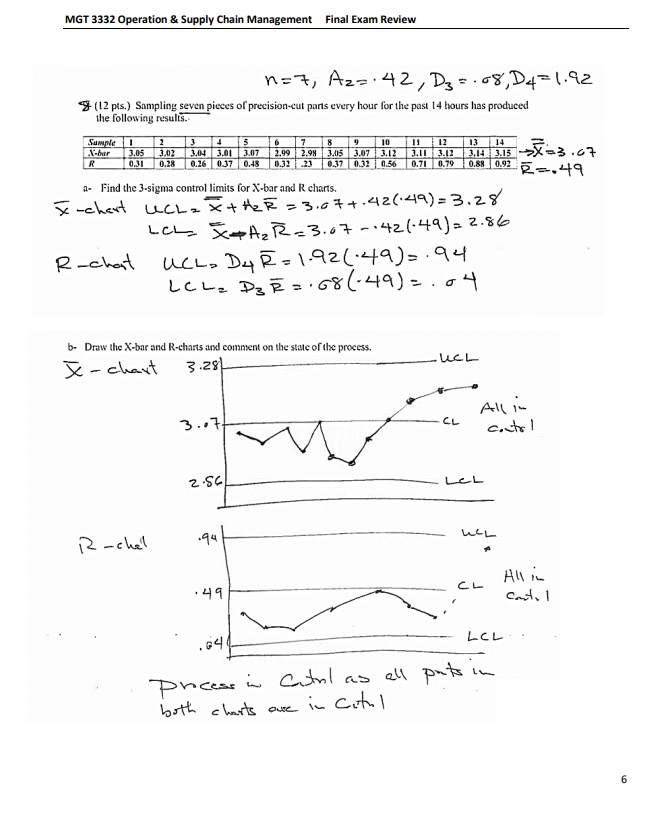 MGT 3332 Operation & Supply Chain Management Final Exam Review
n=7, A2=.42, D3=.08, D4=1.92
8 (12 pts.) Sampling seven pieces of precision-cut parts every hour for the past 14 hours has produced
the following results.
Sample 1 2 3 4 5 6 7 8 9 10 11 12 13 14
X-bar 3.05 3.02 3.04 3.01 3.07 2.99 2.98 3.05 3.07 3.12 3.11 3.12 3.14 3.15 → X̿=3.07
R 0.31 0.28 0.26 0.37 0.48 0.32 .23 0.37 0.32 0.56 0.71 0.79 0.88 0.92 R̄=.49
a- Find the 3-sigma control limits for X-bar and R charts.
X̄-chart UCL = X̿ + A2R̄ = 3.07+.42(.49)=3.28
LCL = X̿ - A2R̄ = 3.07-.42(.49)=2.86
R-chart UCL = D4R̄ = 1.92(.49)=.94
LCL = D3R̄ = .08(.49)=.04
b- Draw the X-bar and R-charts and comment on the state of the process.
X̄-chart 3.28 UCL
3.07 CL All in
control
2.86 LCL
R-chart .94 UCL
.49 CL All in
Control
.04 LCL
Process in Control as all points in
both charts are in Control
6